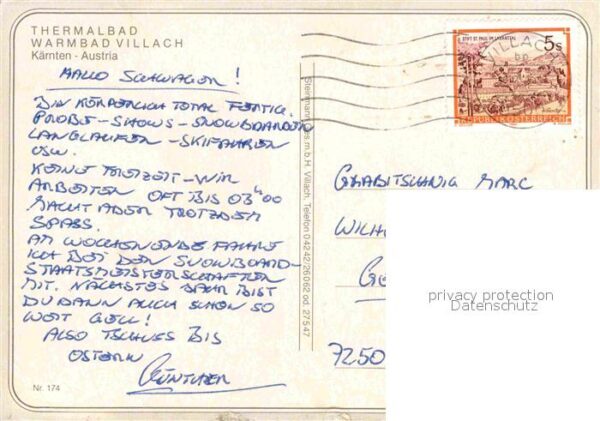 THERMALBAD
WARMBAD VILLACH
Kärnten - Austria
HALLO SCHWAGER!
BIN KÖRPERLICH TOTAL FERTIG.
PROBE-SHOWS-SNOWBOARDEND
LANGLAUFEN-SKIFAHREN
USW.
KEINE FREIZEIT-WIR
ARBEITEN OFT BIS 03°°00
MACHT ABER TROTZDEM
SPASS.
AM WOCHENENDE FAHRE
ICH BEI DEN SNOWBOARD-
STAATSMEISTERSCHAFTEN
MIT. NÄCHSTES JAHR BIST
DU DANN AUCH SCHON SO
WEIT GELL!
ALSO TSCHÜSS BIS
OSTERN
GÜNTHER
Nr. 174
m.b.H. Villach, Telefon 04242/26062 od. 27547
STIFT ST. PAUL IM LAVANTTAL
5s
REPUBLIK ÖSTERREICH
VILLACH
MARC
WILH
7250
privacy protection
Datenschutz